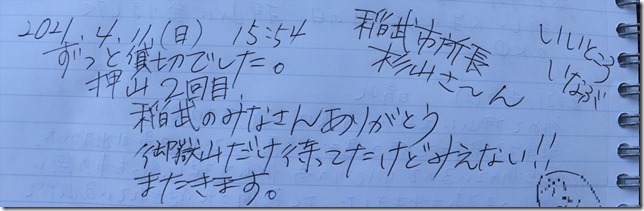 2021.4.11(日) 15:54
ずっと貸切でした。
押山2回目
稲武のみなさんありがとう
御嶽山だけ待ってたけどみえない!!
またきます。
稲武市所長
杉山さーん
いいところ
いなぶ